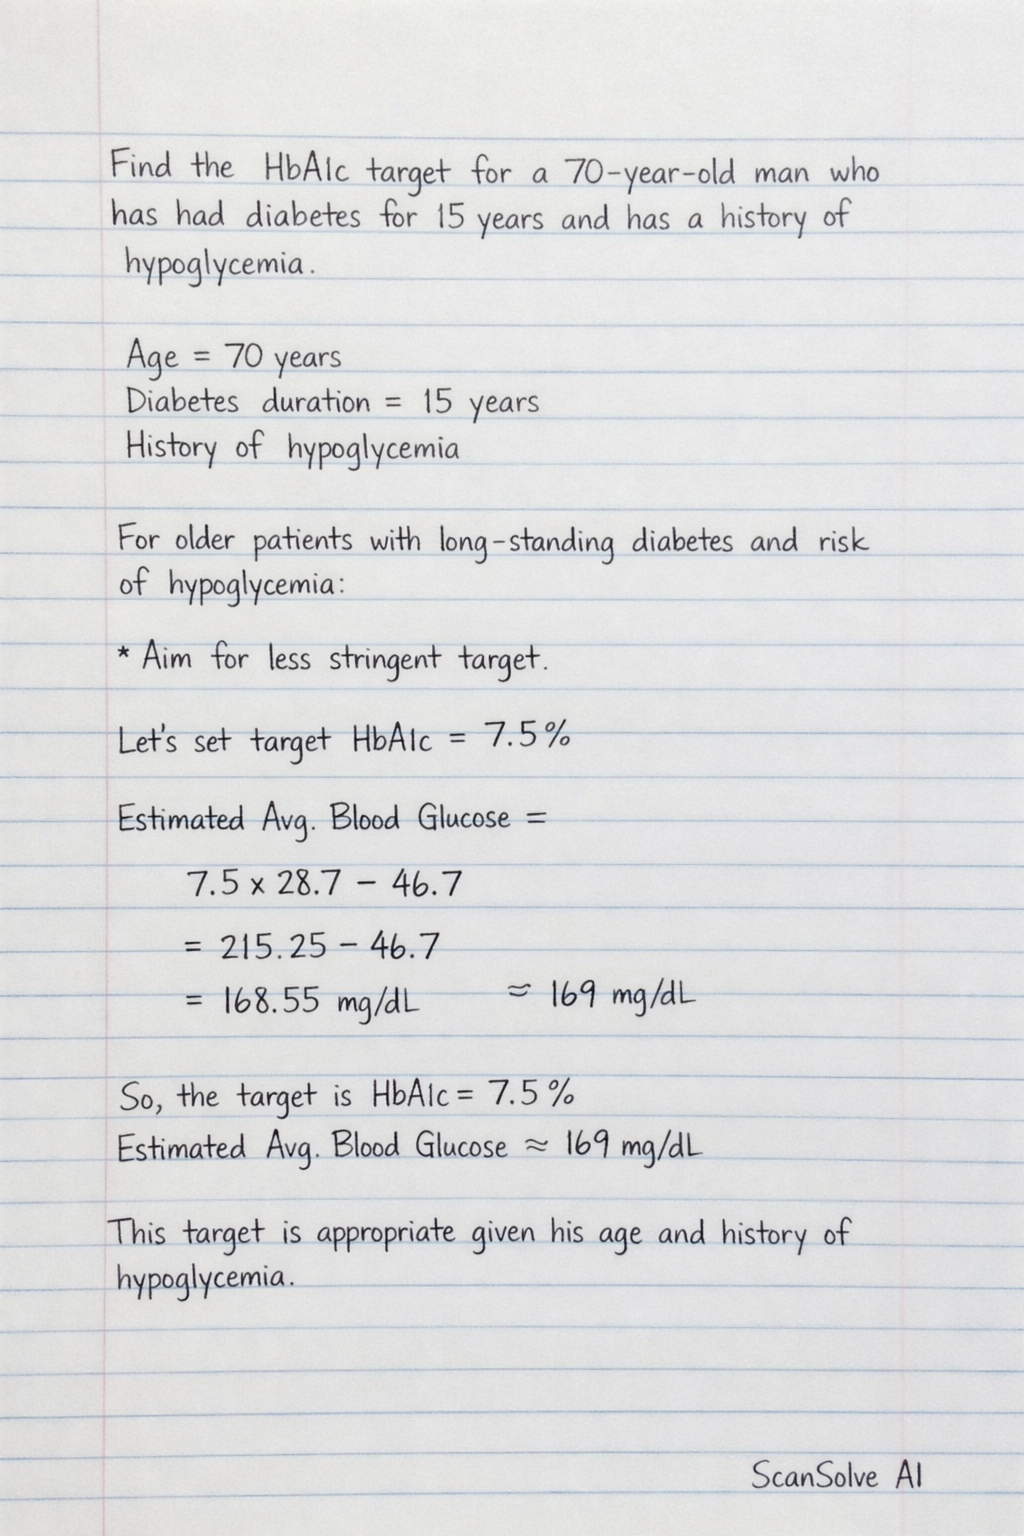 Find the HbA1c target for a 70-year-old man who
has had diabetes for 15 years and has a history of
hypoglycemia.
Age = 70 years
Diabetes duration = 15 years
History of hypoglycemia
For older patients with long-standing diabetes and risk
of hypoglycemia:
* Aim for less stringent target.
Let's set target HbA1c = 7.5%
Estimated Avg. Blood Glucose =
7.5 x 28.7 - 46.7
= 215.25 - 46.7
= 168.55 mg/dL ≈ 169 mg/dL
So, the target is HbA1c = 7.5%
Estimated Avg. Blood Glucose ≈ 169 mg/dL
This target is appropriate given his age and history of
hypoglycemia.
ScanSolve AI